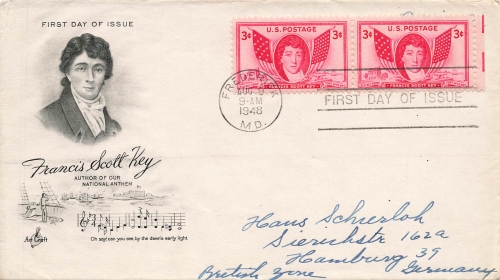 FIRST DAY OF ISSUE
Francis Scott Key
AUTHOR OF OUR
NATIONAL ANTHEM
Oh say! can you see, by the dawn's early light
Art Craft
U.S. POSTAGE
3¢ 3¢
FRANCIS SCOTT KEY
U.S. POSTAGE
3¢ 3¢
FRANCIS SCOTT KEY
FREDERICK
AUG 9
9-AM
1948
MD.
FIRST DAY OF ISSUE
Hans Schierloh
Sierichstr 162a
Hamburg 39
British Zone Germany